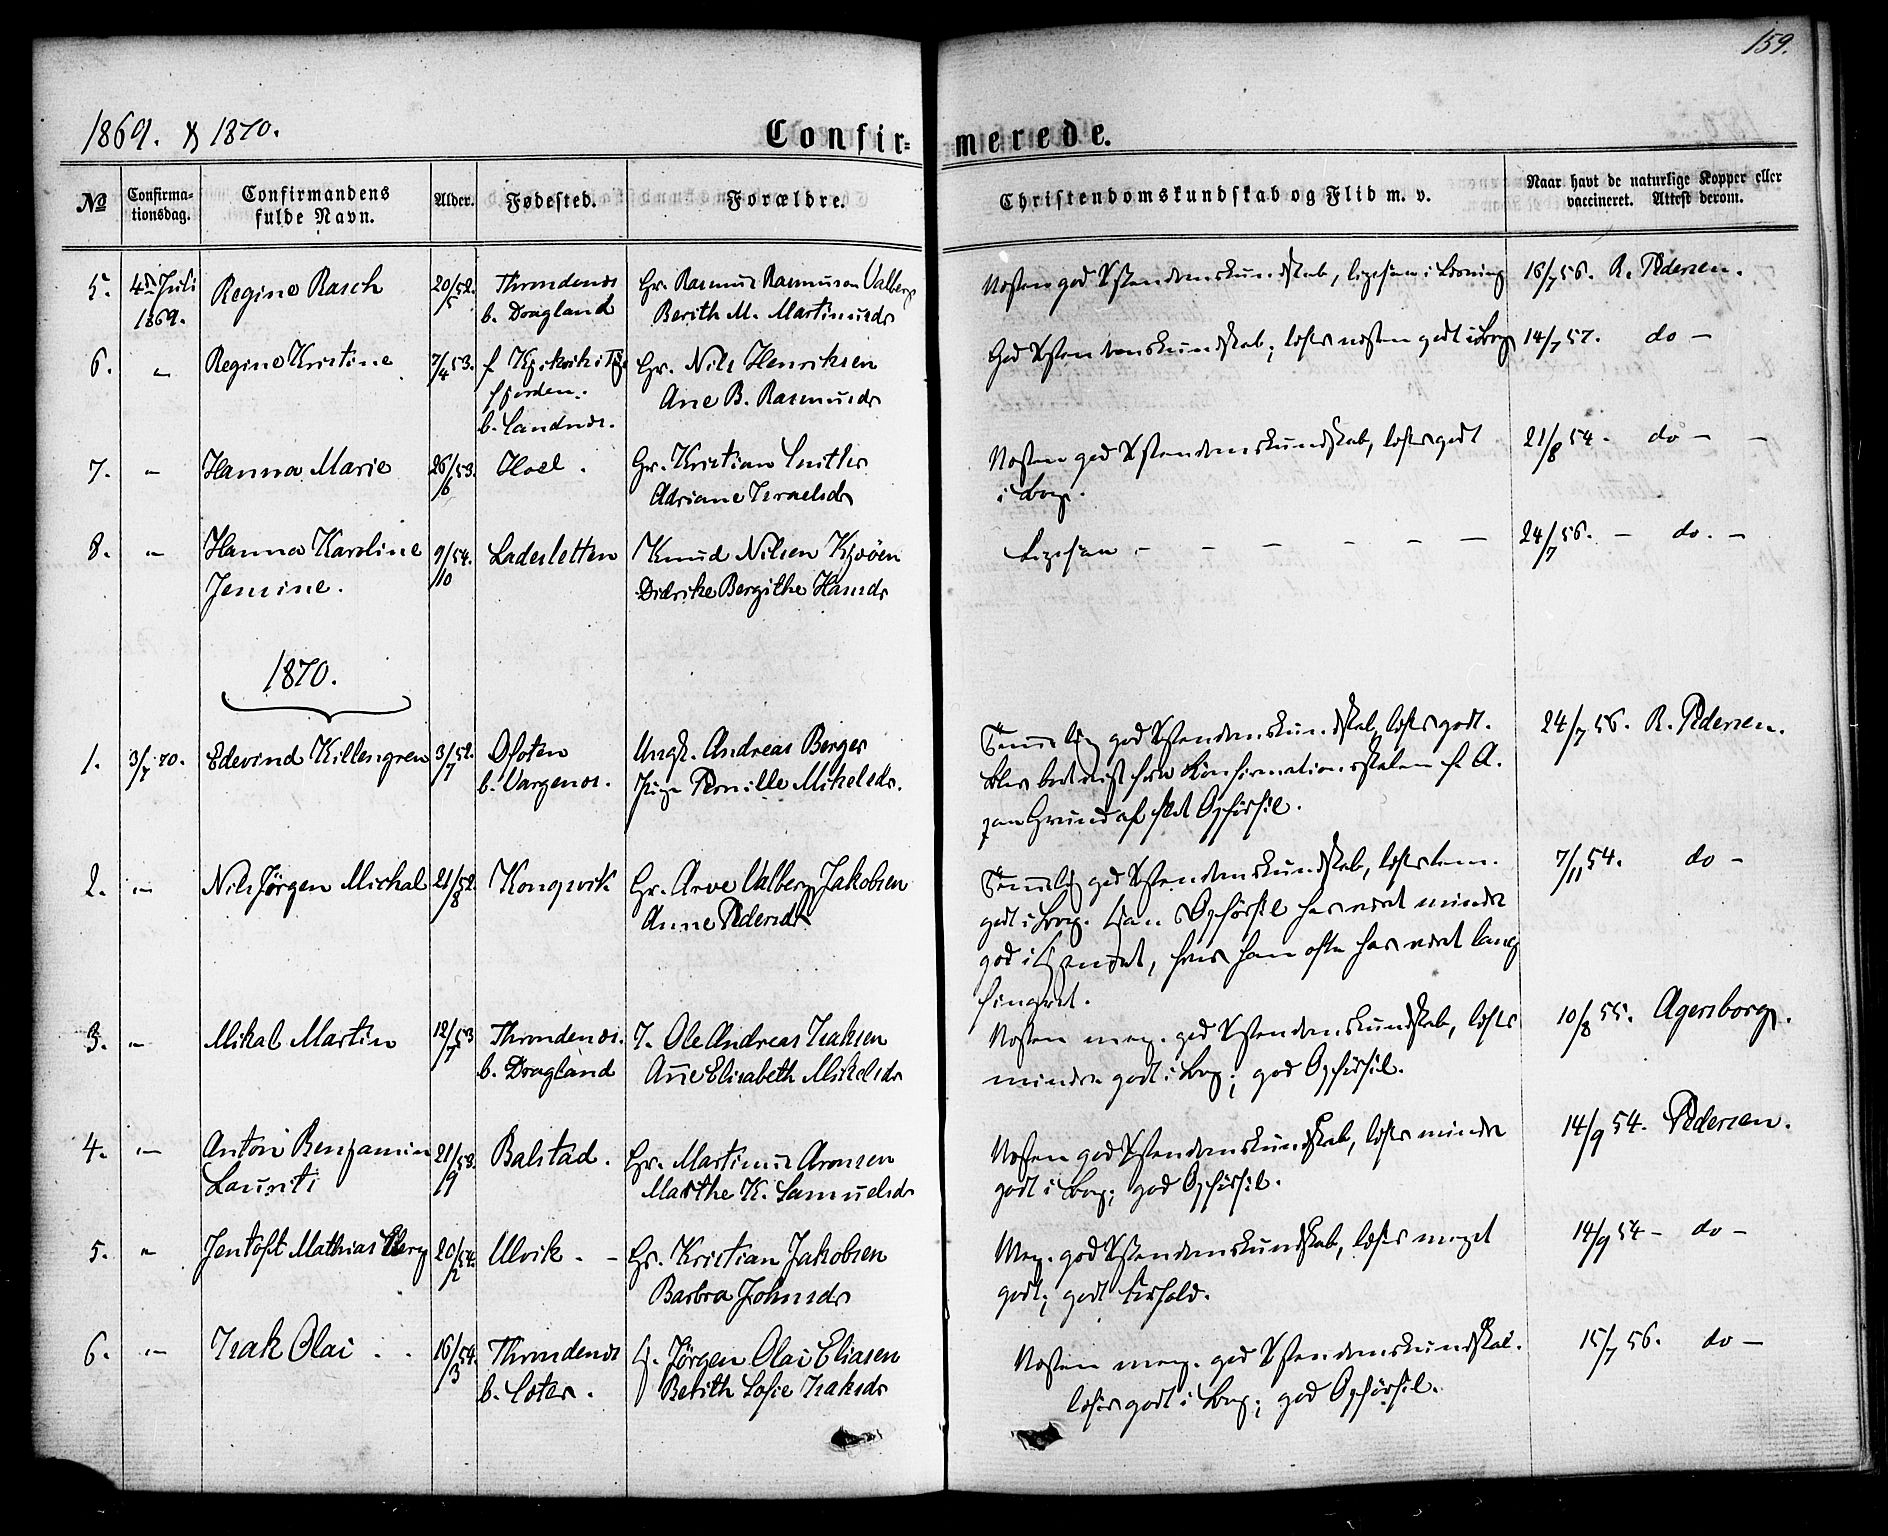 159.
1869. & 1870.
Confir=
merede.
№
Confirma-
tionsdag.
Confirmandens
fulde Navn.
Alder.
Fødested.
Forældre.
Christendomskundskab og Flid m. v.
Naar havt de naturlige Kopper eller
vaccineret. Attest derom.
5. 4de Juli Regine Rasch 20/5 52. Throndenæs Gr. Rasmus Rasmusen Valberg
1869. b. Dragland Berith M. Martinusdr
Næsten god Xstendomskundskab, ligesaa i Læsning 16/7 56. R. Pedersen.
6. " Regine Kristine 7/4 53. f Gr. Nils Henriksen
fjorden. Ane B. Rasmusdr
b. Sandnæs.
God Xstendomskundskab; læser næsten godt i Bog 14/7 57. do —
7. " Hanna Marie 26/6 53. Hoel. Gr. Kristian
Adriane Israelsdr
Næsten god Xstendomskundskab, læser godt 21/8 54. do — —
i Bog.
8. " Hanna Karoline 9/10 54. Ladesletten Knud Nilsen
Jemine. Didrike Bergithe Hansdr
Ligesaa — — — — — — 24/7 56. — do. —
1870.
1. 3/7 70. Edevind Killengren 3/7 52. Ofoten Ungk. Andreas Berger
b. Vargenæs. Pige Pernille Mikelsdr.
Temmelig god Xstendomskundskab, læser godt. 24/7 56. R. Pedersen.
Blev bortvist fra Konfirmationsskolen f. A.
paa Grund af slet Opførsel.
2. " Nils Jørgen Michal 21/8 52. Kongsvik Gr. Arve Valberg Jakobsen
Anne Pedersdr
Temmelig god Xstendomskundskab, læser tem. 7/11 54. do —
godt i Bog. Hans Opførsel har været mindre
god i, hvor han ofte har været lang
fingret.
3. " Mikal Martin 12/7 53 Throndenæs. I. Ole Andreas Isaksen
b. Dragland Ane Elisabeth Mikelsdr
Næsten meg. god Xstendomskundskab, læser 10/8 55. Agersborg.
mindre godt i Bog; god Opførsel.
4. " Anton Benjamin 21/9 53. Balstad. Gr. Martinus Aronsen
Lauriti Marthe K. Samuelsdr
Næsten god Xstendomskundskab, læser mindre 14/9 54. Pedersen.
godt i Bog; god Opførsel.
5. " Jentoft Mathias Elberg 20/2 54. Ulvik. — Gr. Kristian Jakobsen
Barbra Johnsdr
Meg. god Xstendomskundskab, læser meget 14/9 54 — do —
godt; godt Forhold.
6. " Isak Olai . . 16/3 54. Throndenæs G. Jørgen Olai Eliasen
b. Soter. Berith Sofie Isaksdr
Næsten meg. god Xstendomskundskab. 15/7 56. do —
læser godt i Bog; god Opførsel.